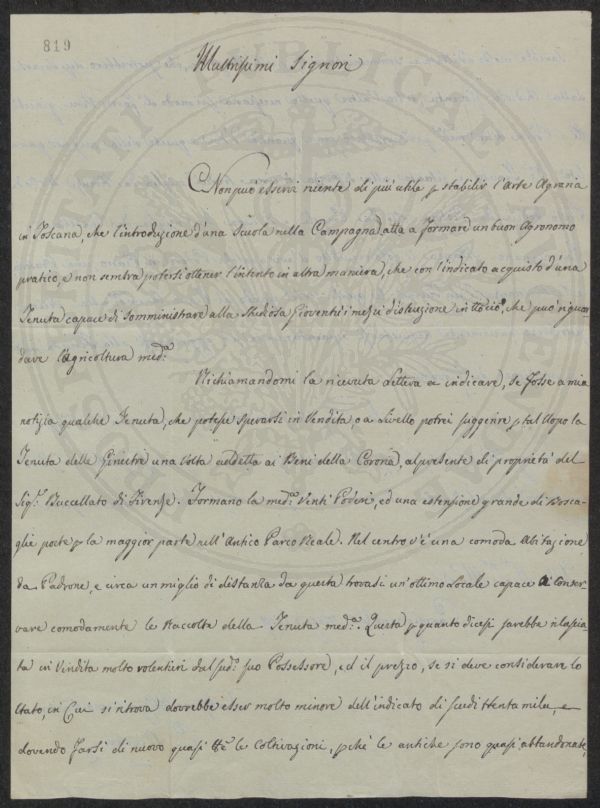 819
Illustrissimi Signori
Non può esservi niente di più utile p stabilir l'Arte Agraria
in Toscana, che l'introduzione d'una Scuola nella Campagna, atta a formare un buon Agronomo
pratico, e non sembra potersi ottener l'intento in altra maniera, che con l'indicato acquisto d'una
Tenuta capace di somministrare alla Studiosa Gioventù i mezzi d'istruzione in tto ciò, che può riguar=
dare l'agricoltura med.a
Richiamandomi la ricevuta Lettera a indicare, se fosse a mia
notizia qualche Tenuta, che potesse sperarsi in Vendita, o a Livello potrei suggerire p tal Uopo la
Tenuta delle Ginestre una Volta addetta ai Beni della Corona, al presente di proprietà del
Sig.r Buccellato di Firenze. Formano la med.a Venti Poderi, ed una estensione grande di Bosca=
glie poste p la maggior parte nell'Antico Parco Reale. Nel centro v'è una comoda Abitazione
da Padrone, e circa un miglio di distanza da questa trovasi un'ottimo Locale capace a conser=
vare comodamente le Raccolte della Tenuta med.a Questa p quanto dicesi sarebbe rilascia=
ta in Vendita molto volentieri dal sud.o suo Possessore, ed il prezzo, se si deve considerare lo
Stato, in Cui si ritrova dovrebbe esser molto minore dell'indicato di Scudi ttentamila, e
dovendo farsi di nuovo quasi tte le Coltivazioni, pchè le antiche sono quasi abbandonate,